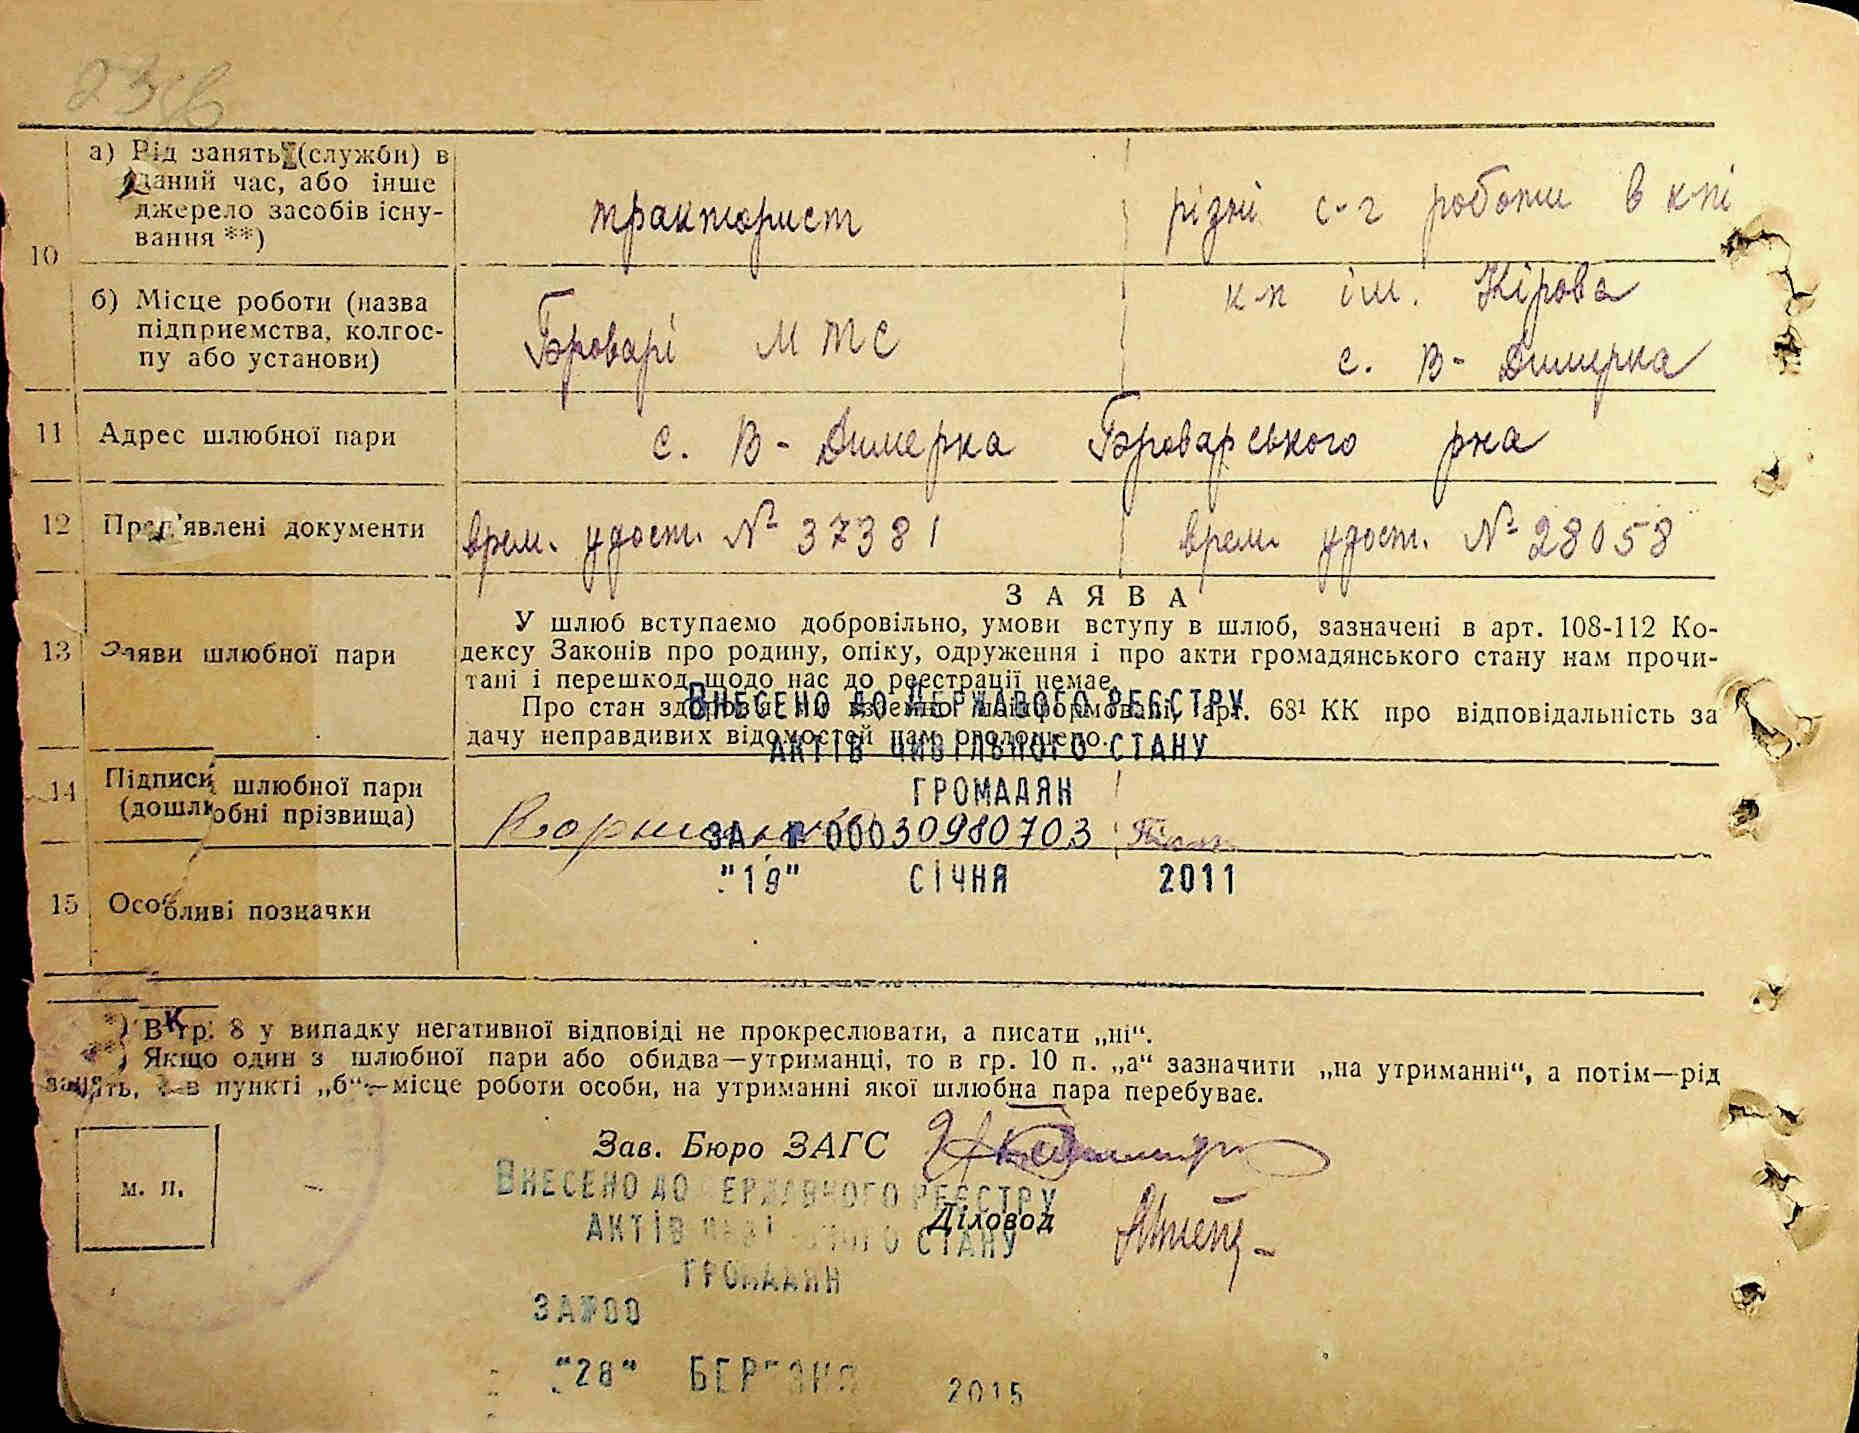 10
а) Рід занять (служби) в
даний час, або інше
джерело засобів існу-
вання **)
тракторист
різні с-г роботи в кпі
б) Місце роботи (назва
підприємства, колгос-
пу або установи)
Броварі МТС
к-п ім. Кірова
с. В-Димерка
11 Адрес шлюбної пари
с. В-Димерка Броварського рна
12 Пред'явлені документи
врем. удост. № 37381
врем. удост. № 28058
13 Заяви шлюбної пари
ЗАЯВА
У шлюб вступаємо добровільно, умови вступу в шлюб, зазначені в арт. 108-112 Ко-
дексу Законів про родину, опіку, одруження і про акти громадянського стану нам прочи-
тані і перешкод щодо нас до реєстрації немає.
Про стан здоров'я ми взаємно поінформовані, арт. 68¹ КК про відповідальність за
дачу неправдивих відомостей нам оголошено.
ВНЕСЕНО ДО ДЕРЖАВОГО РЕЄСТРУ
АКТІВ ЦИВІЛЬНОГО СТАНУ
ГРОМАДЯН
ЗА № 00030980703
"19" СІЧНЯ 2011
14 Підписи шлюбної пари
(дошлюбні прізвища)
15 Особливі позначки
*) В гр. 8 у випадку негативної відповіді не прокреслювати, а писати „ні“.
**) Якщо один з шлюбної пари або обидва—утриманці, то в гр. 10 п. „а“ зазначити „на утриманні“, а потім—рід
занять, а в пункті „б“—місце роботи особи, на утриманні якої шлюбна пара перебуває.
м. п.
Зав. Бюро ЗАГС
Діловод
ВНЕСЕНО ДО ДЕРЖАВНОГО РЕЄСТРУ
АКТІВ ЦИВІЛЬНОГО СТАНУ
ГРОМАДЯН
ЗА №00
"28" БЕРЕЗНЯ 2015